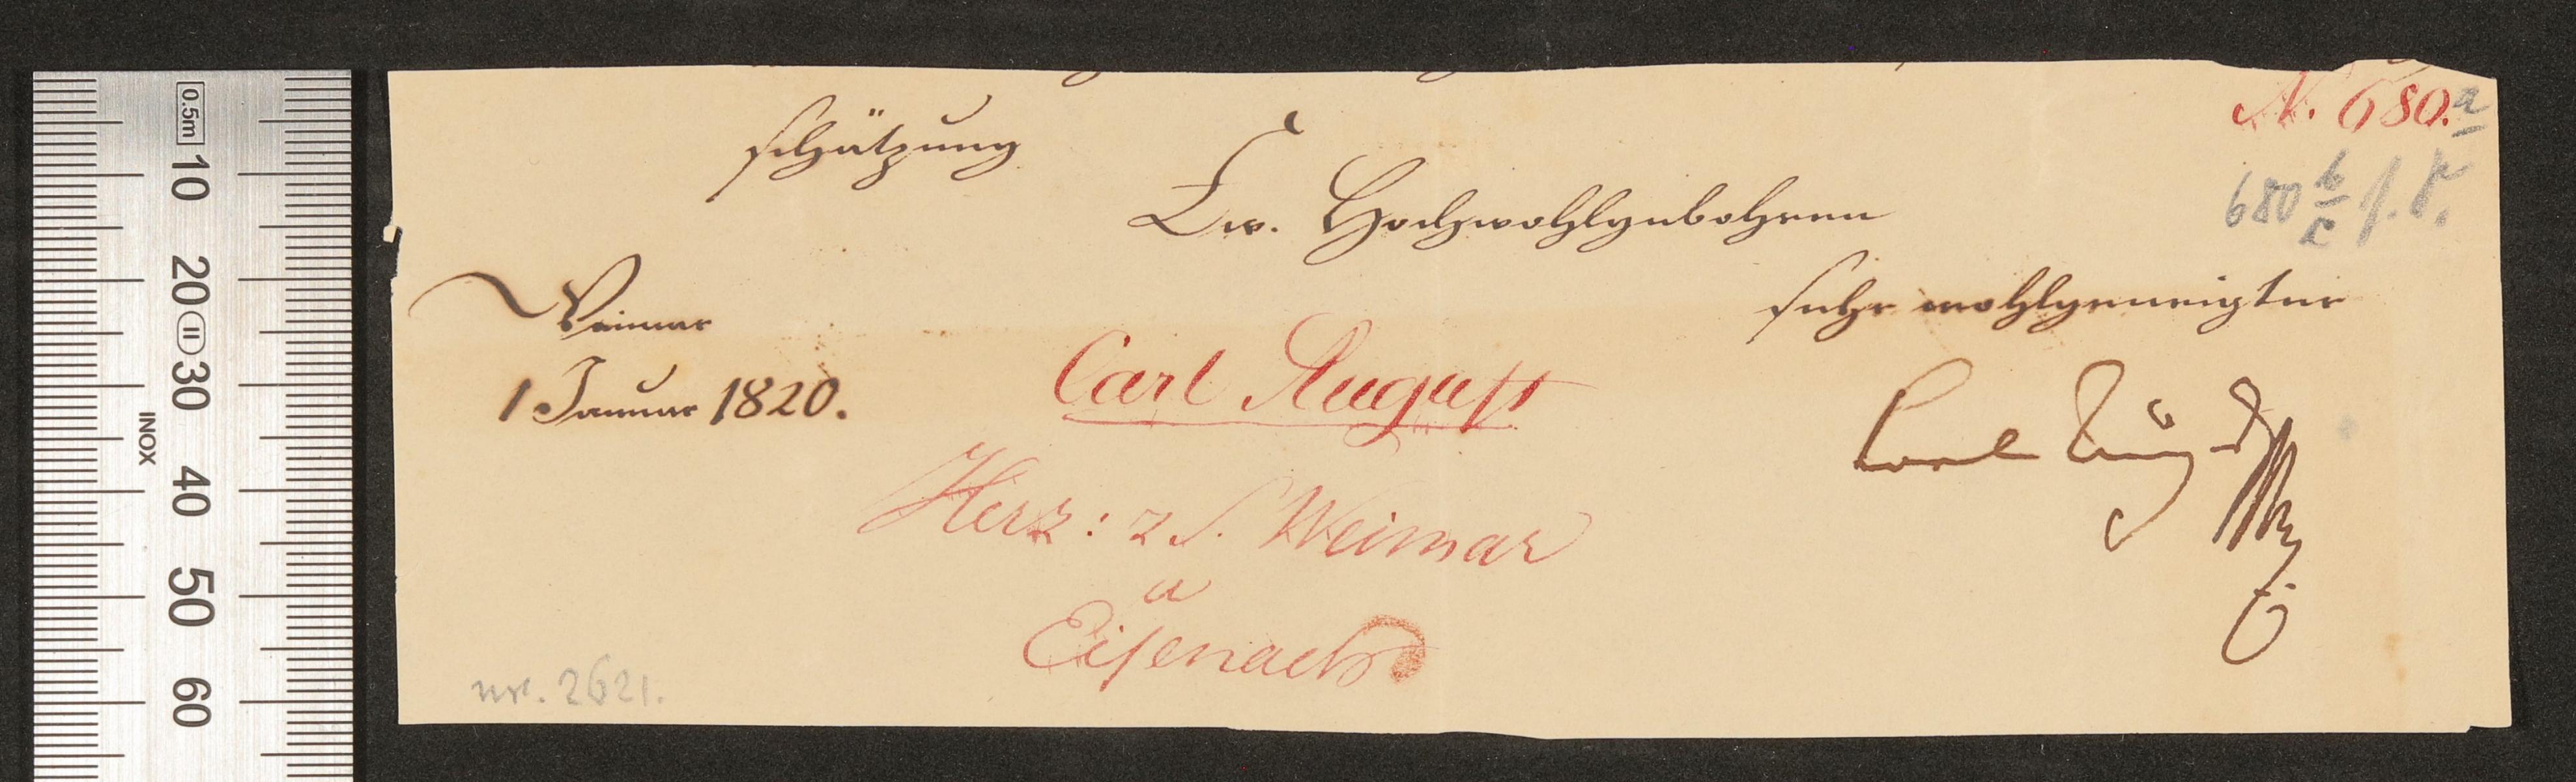 N. 680. a
schätzung
680 b/c f. F.
Ew. Hochwohlgebohren
sehr wohlgeneigter
Weimar
1 Januar 1820.
Carl August
Carl August
Herz: z S. Weimar
u
Eisenach
nr. 2621.
0.5m
10
20
II
30
40
50
60
INOX